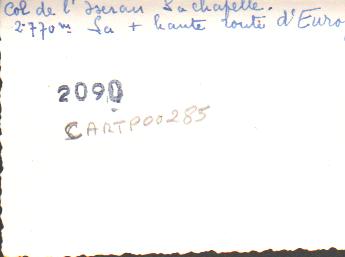 Col de l'Iseran La chapelle.
2.770m La + haute route d'Euro
2090
CARTP00285